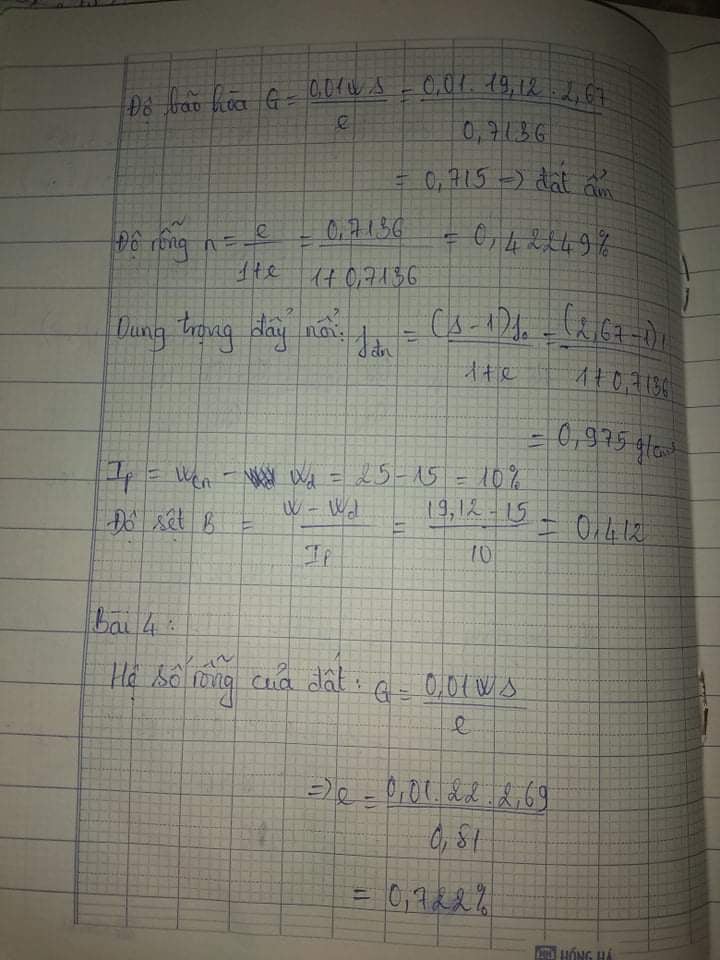 Độ bão hòa G = 0,01WΔ/e = 0,01 . 19,12 . 2,67/0,7136
= 0,715 => đất ẩm
Độ rỗng n = e/1+e = 0,7136/1+0,7136 = 0,42249%
Dung trọng đẩy nổi: γđn = (Δ-1)γo/1+e = (2,67-1)1/1+0,7136
= 0,975 g/cm³
Ip = Wcn - Wd = 25 - 15 = 10%
Độ sệt B = W - Wd/Ip = 19,12 - 15/10 = 0,412
Bài 4:
Hệ số rỗng của đất: G = 0,01WΔ/e
=> e = 0,01 . 22 . 2,69/0,81
= 0,722%
HỒNG HÀ